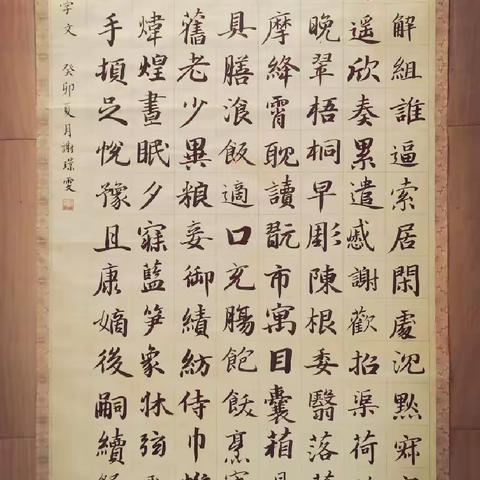 解組誰逼索居閑處沉默寂
遥欣奏累遣慼謝歡招渠荷
晚翠梧桐早彫陳根委翳落
摩絳霄耽讀翫市寓目囊箱
具膳飡飯適口充腸飽飫烹宰
舊老少異粮妾御績紡侍巾
煒煌晝眠夕寐藍笋象牀弦
手頓足悅豫且康嫡後嗣續
字文 癸卯夏月謝璨雯